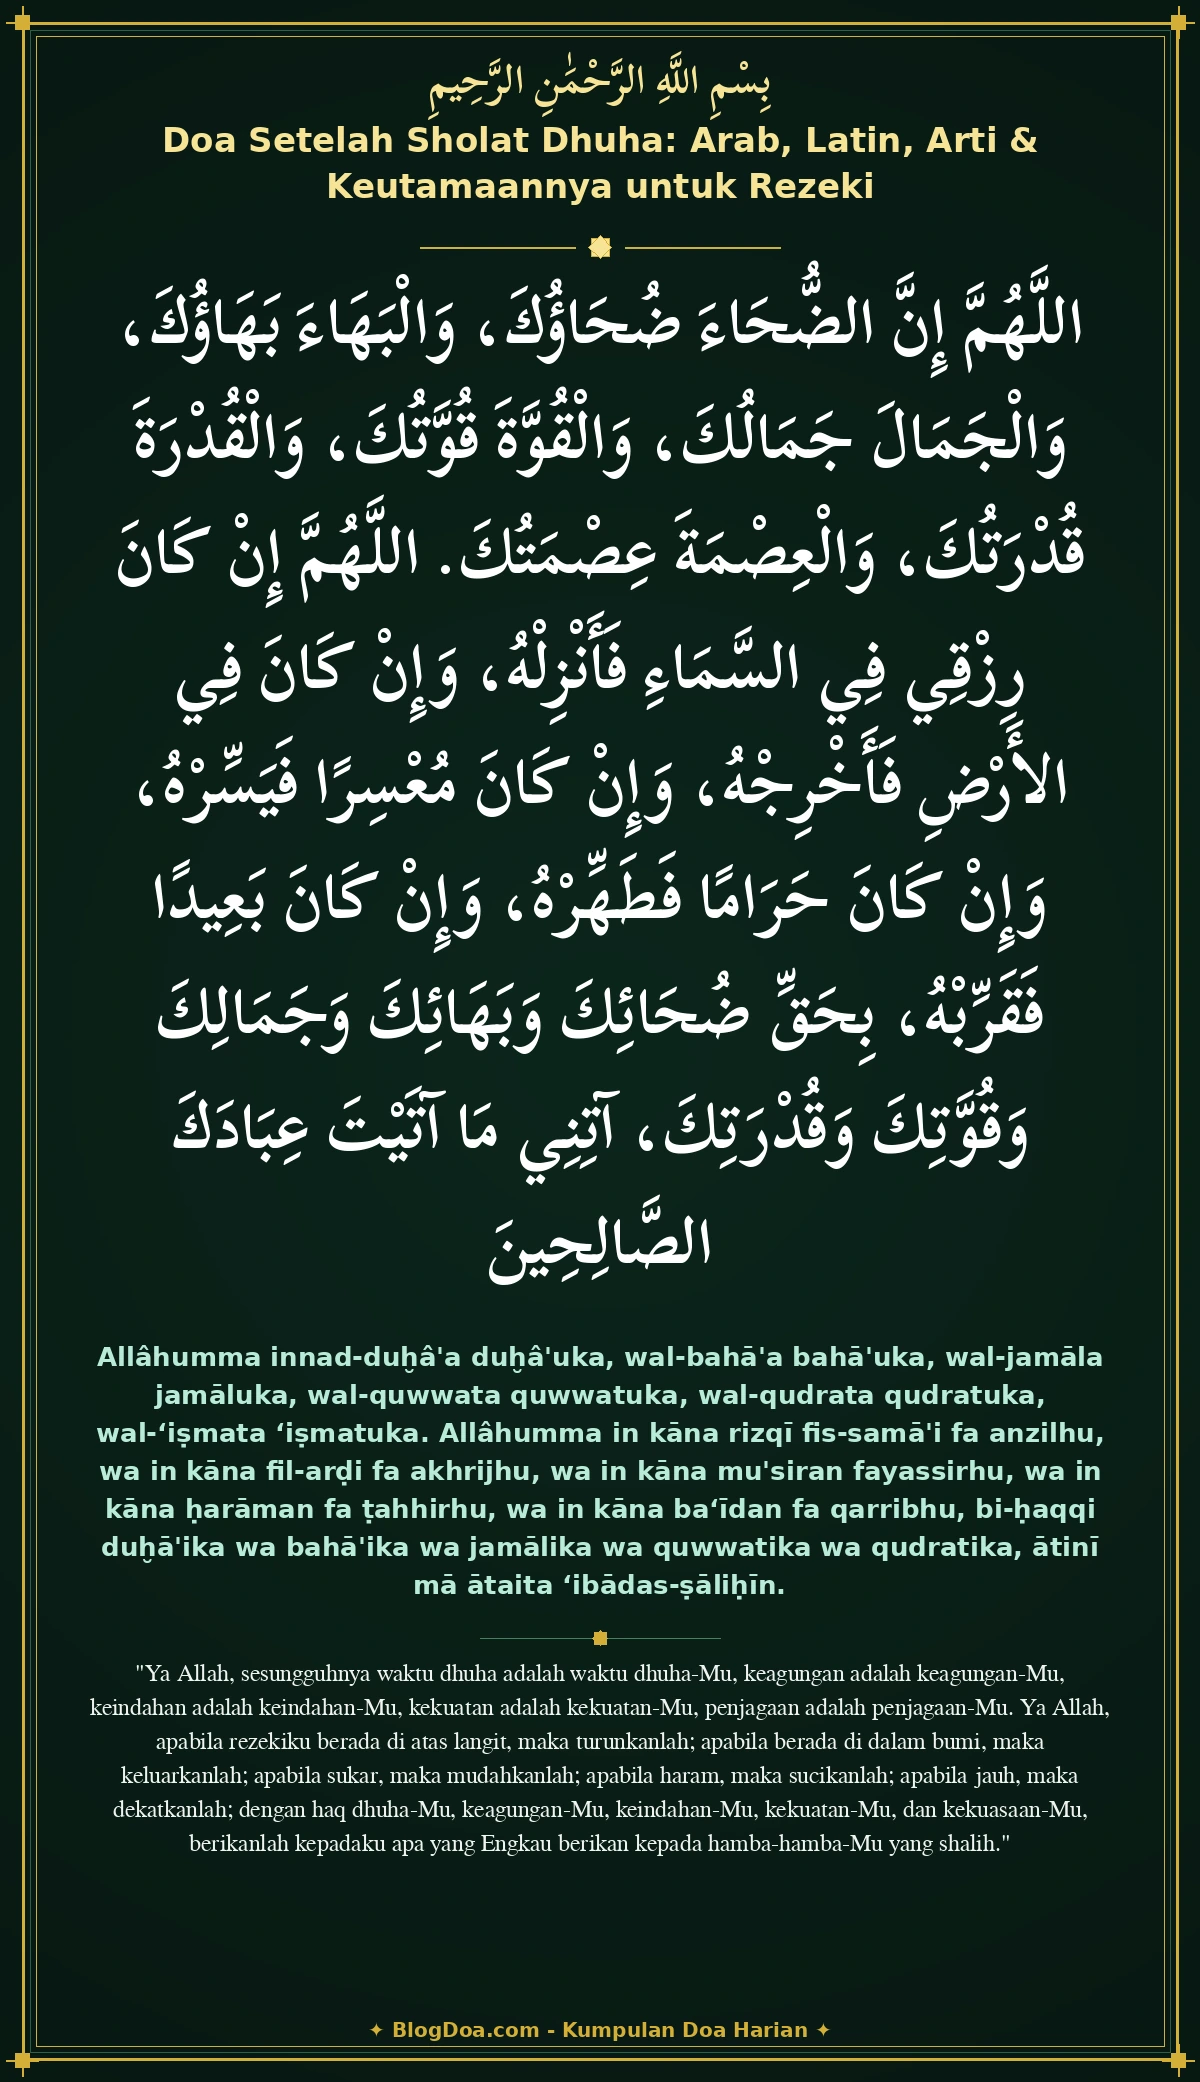 بِسْمِ اللَّهِ الرَّحْمَٰنِ الرَّحِيمِ
Doa Setelah Sholat Dhuha: Arab, Latin, Arti &
Keutamaannya untuk Rezeki
اللَّهُمَّ إِنَّ الضُّحَاءَ ضُحَاؤُكَ، وَالْبَهَاءَ بَهَاؤُكَ،
وَالْجَمَالَ جَمَالُكَ، وَالْقُوَّةَ قُوَّتُكَ، وَالْقُدْرَةَ
قُدْرَتُكَ، وَالْعِصْمَةَ عِصْمَتُكَ. اللَّهُمَّ إِنْ كَانَ
رِزْقِي فِي السَّمَاءِ فَأَنْزِلْهُ، وَإِنْ كَانَ فِي
الأَرْضِ فَأَخْرِجْهُ، وَإِنْ كَانَ مُعْسِرًا فَيَسِّرْهُ،
وَإِنْ كَانَ حَرَامًا فَطَهِّرْهُ، وَإِنْ كَانَ بَعِيدًا
فَقَرِّبْهُ، بِحَقِّ ضُحَائِكَ وَبَهَائِكَ وَجَمَالِكَ
وَقُوَّتِكَ وَقُدْرَتِكَ، آتِنِي مَا آتَيْتَ عِبَادَكَ
الصَّالِحِينَ
Allâhumma innad-duḫâ'a duḫâ'uka, wal-bahā'a bahā'uka, wal-jamāla
jamāluka, wal-quwwata quwwatuka, wal-qudrata qudratuka,
wal-‘iṣmata ‘iṣmatuka. Allâhumma in kāna rizqī fis-samā'i fa anzilhu,
wa in kāna fil-arḍi fa akhrijhu, wa in kāna mu'siran fayassirhu, wa in
kāna ḥarāman fa ṭahhirhu, wa in kāna ba‘īdan fa qarribhu, bi-ḥaqqi
duḫā'ika wa bahā'ika wa jamālika wa quwwatika wa qudratika, ātinī
mā ātaita ‘ibādas-ṣāliḥīn.
"Ya Allah, sesungguhnya waktu dhuha adalah waktu dhuha-Mu, keagungan adalah keagungan-Mu,
keindahan adalah keindahan-Mu, kekuatan adalah kekuatan-Mu, penjagaan adalah penjagaan-Mu. Ya Allah,
apabila rezekiku berada di atas langit, maka turunkanlah; apabila berada di dalam bumi, maka
keluarkanlah; apabila sukar, maka mudahkanlah; apabila haram, maka sucikanlah; apabila jauh, maka
dekatkanlah; dengan haq dhuha-Mu, keagungan-Mu, keindahan-Mu, kekuatan-Mu, dan kekuasaan-Mu,
berikanlah kepadaku apa yang Engkau berikan kepada hamba-hamba-Mu yang shalih."
✦ BlogDoa.com - Kumpulan Doa Harian ✦